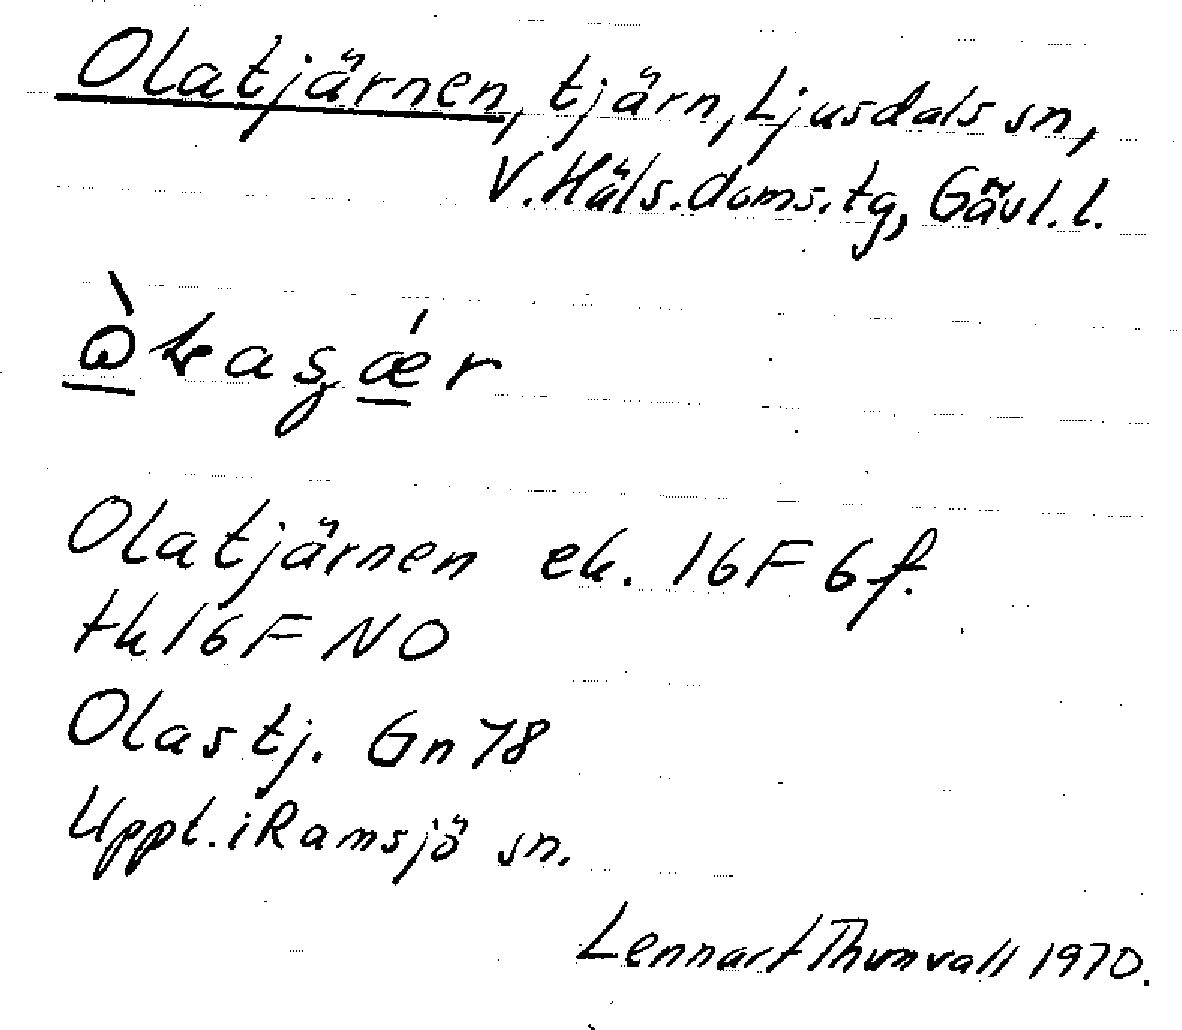 Olatjärnen, tjärn, Ljusdals sn,
V. Häls. doms. tg, Gävl. l.
Olatjärnen ek. 16F 6f.
tk 16 F NO
Olastj. Gn 78
Uppt. i Ramsjö sn.
Lennart Thunvall 1970.